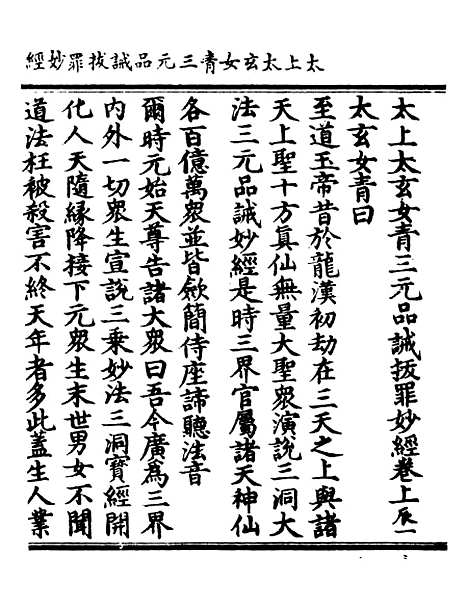 太上太玄女青三元品誡拔罪妙經
太上太玄女青三元品誡拔罪妙經卷上 辰一
太玄女青曰
至道玉帝昔於龍漢初劫在三天之上與諸
天上聖十方真仙無量大聖衆演說三洞大
法三元品誡妙經是時三界官屬諸天神仙
各百億萬衆並皆歛簡侍座諦聽法音
爾時元始天尊告諸大衆曰吾今廣爲三界
內外一切衆生宣說三乘妙法三洞寶經開
化人天隨緣降接下元衆生末世男女不聞
道法枉被殺害不終天年者多此蓋生人業